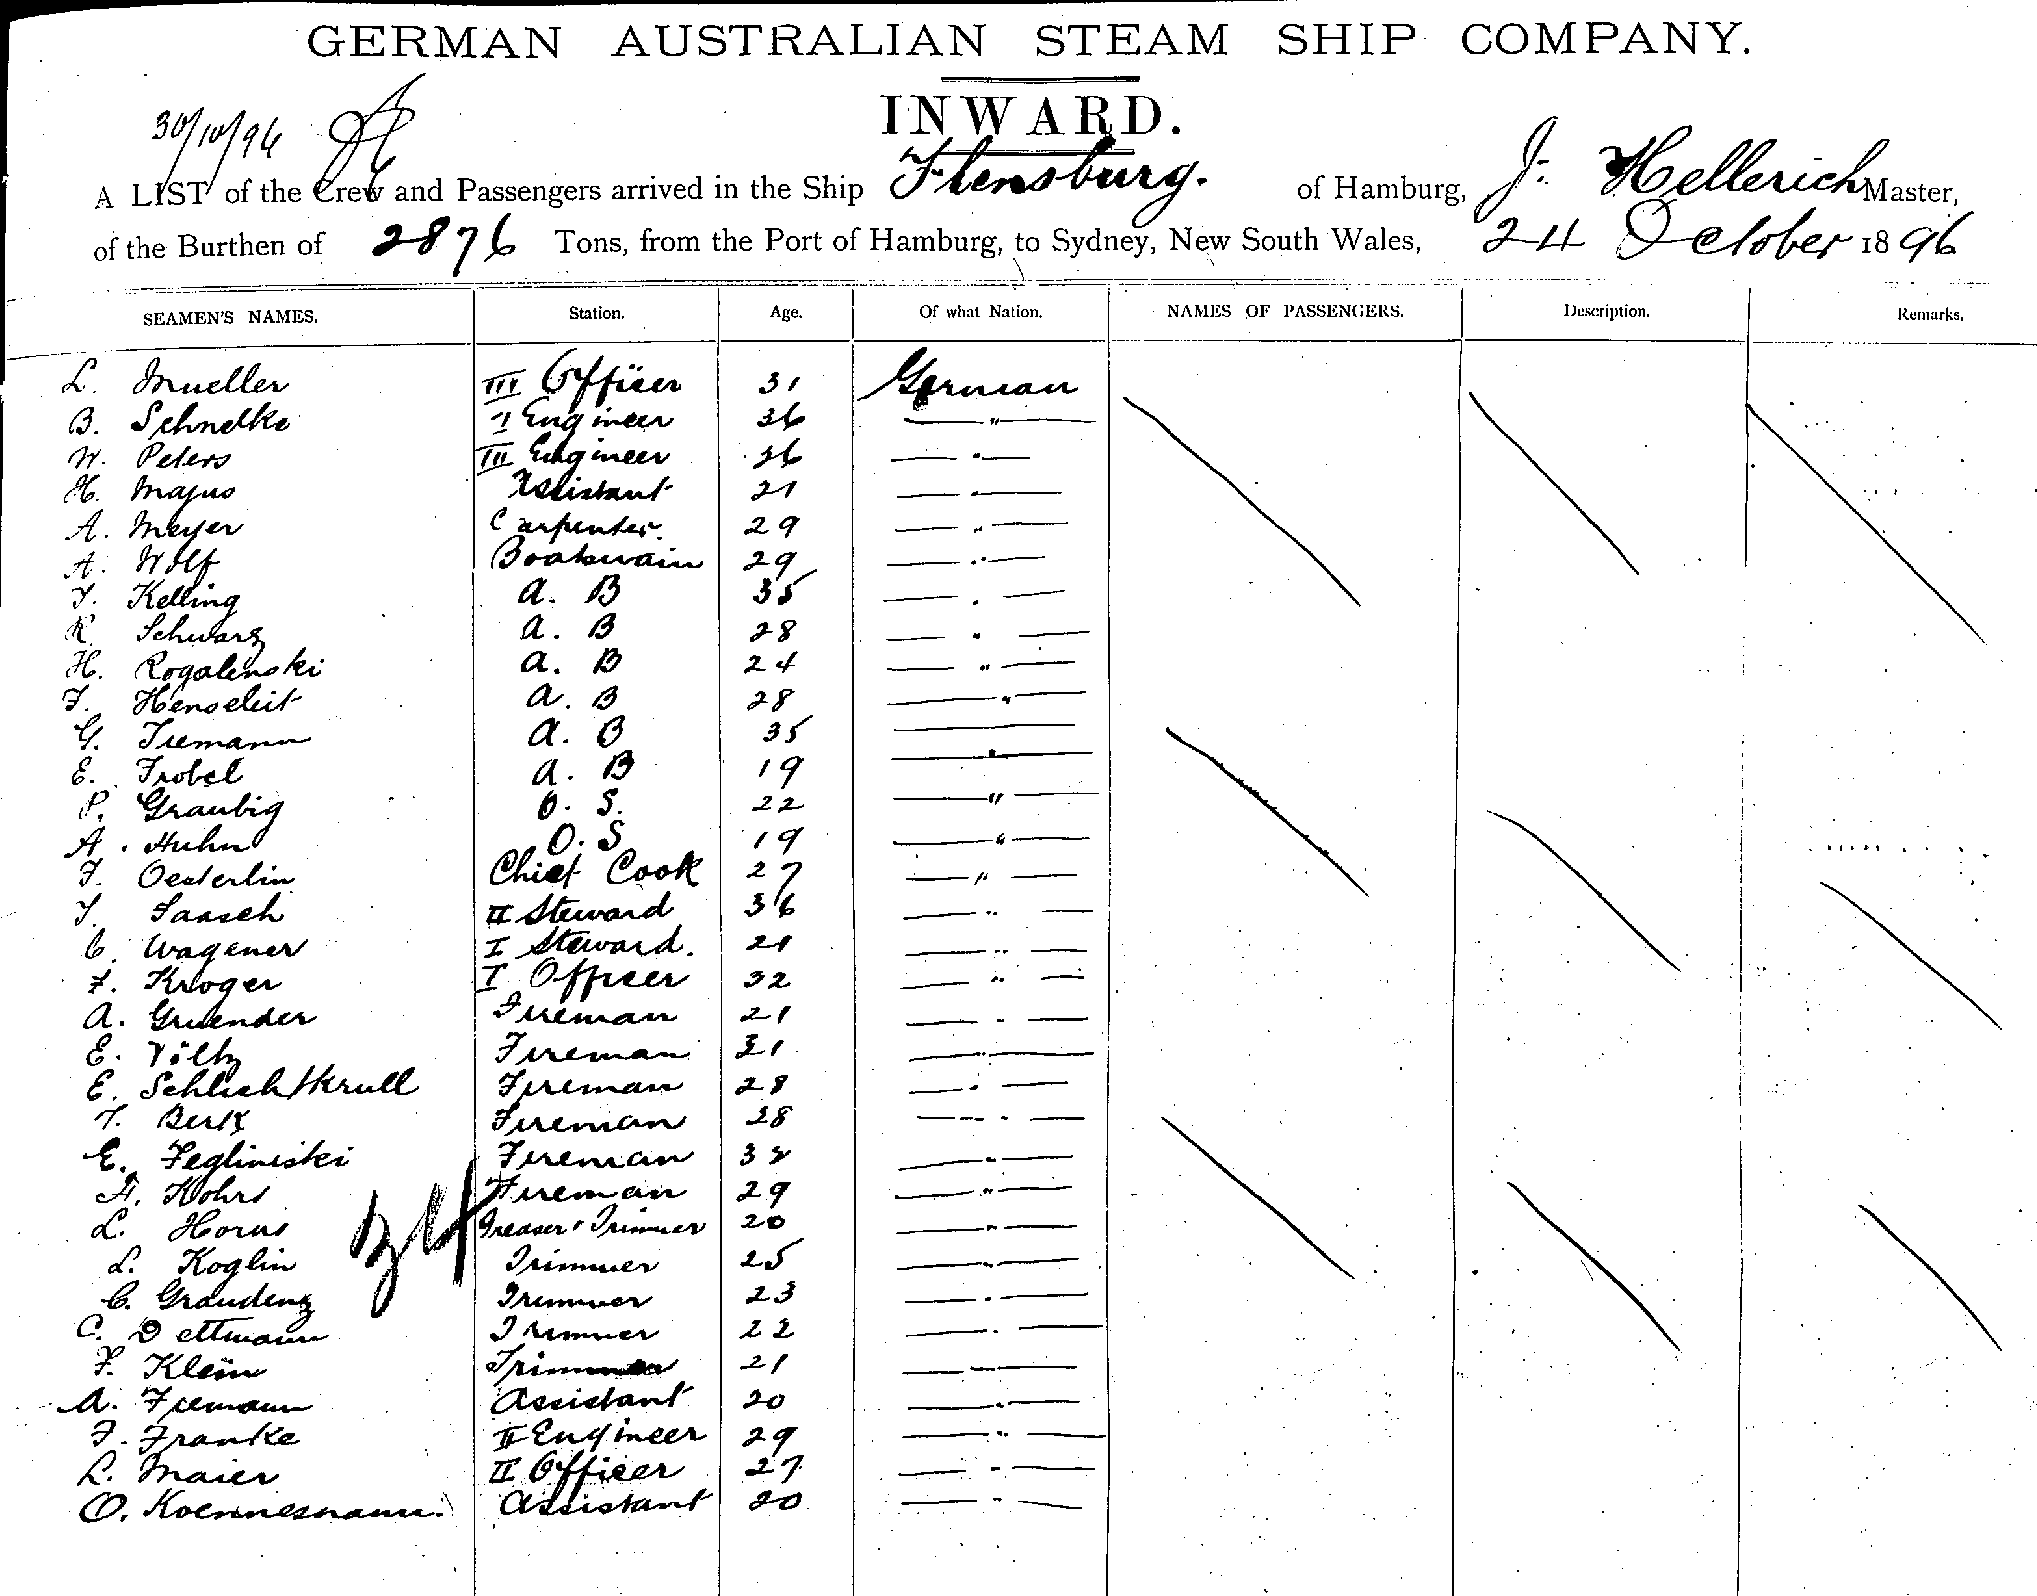 GERMAN AUSTRALIAN STEAM SHIP COMPANY.
INWARD.
30/10/96
A LIST of the Crew and Passengers arrived in the Ship Flensburg. of Hamburg, J. Hellerich Master,
of the Burthen of 2876 Tons, from the Port of Hamburg, to Sydney, New South Wales, 24 October 1896
SEAMEN'S NAMES. Station. Age. Of what Nation. NAMES OF PASSENGERS. Description. Remarks.
L. Mueller III Officer 31 German
B. Schnelke I Engineer 36 "
W. Peters III Engineer 26 "
H. Majus Assistant 21 "
A. Meyer Carpenter 29 "
A. Wolf Boatswain 29 "
J. Kelling A. B 35 "
R. Schwarz A. B 28 "
H. Rogalenski A. B 24 "
F. Henseleit A. B 28 "
G. Tiemann A. B 35 "
E. Frobel A. B 19 "
P. Graubig O. S. 22 "
A. Huhn O. S 19 "
F. Oesterlin Chief Cook 27 "
J. Saasch II Steward 36 "
C. Wagener I Steward. 21 "
F. Kroger I Officer 32 "
A. Gruender Fireman 21 "
E. Fireman 31 "
E. Schlichtkrull Fireman 28 "
Fireman 28 "
E. Fireman 32 "
Kohrs Fireman 29 "
L. Horns Greaser & Trimmer 20 "
L. Koglin Trimmer 25 "
C. Graudenz Trimmer 23 "
C. Dettmann Trimmer 22 "
F. Klein Trimmer 21 "
A. Tiemann Assistant 20 "
F. Franke II Engineer 29 "
L. Maier II Officer 27 "
O. Koennemann. Assistant 20 "